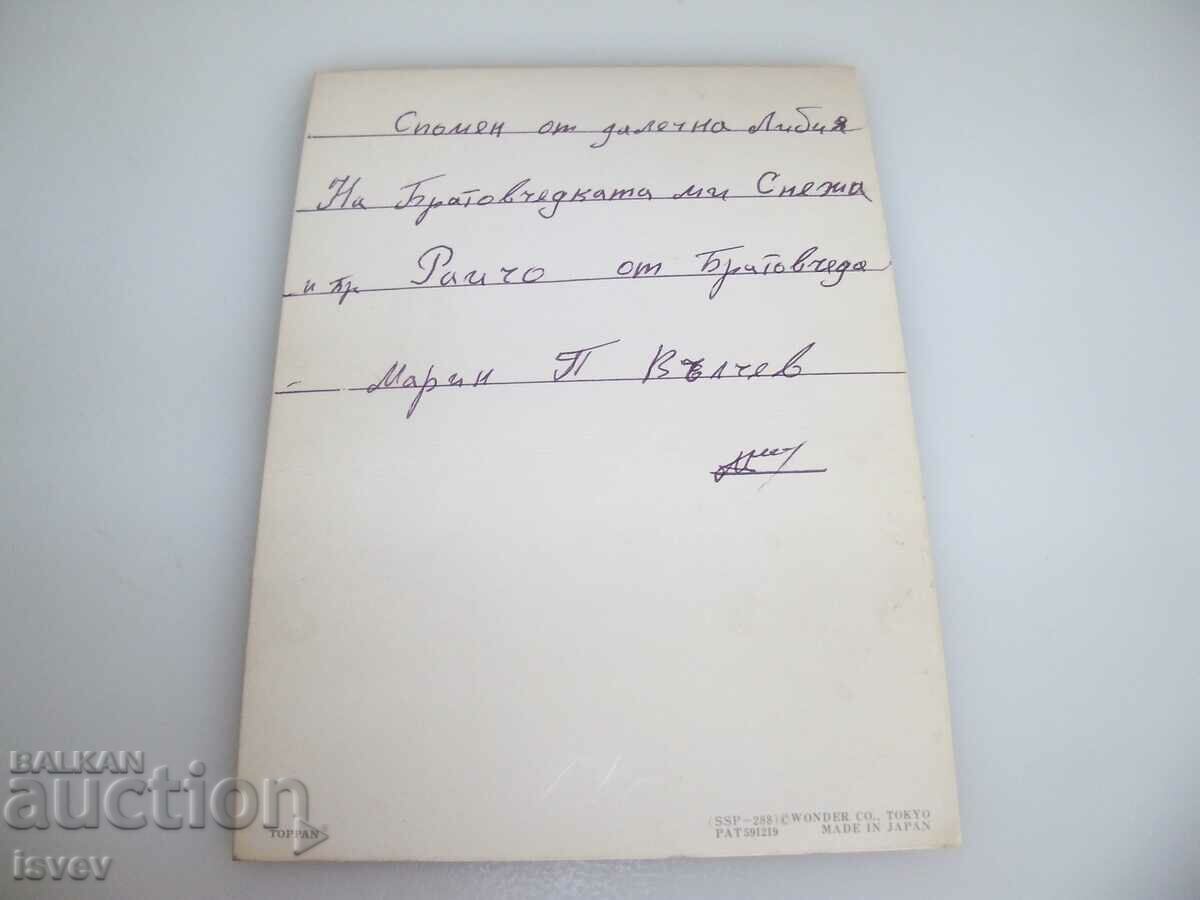 Спомен от далечна Либия
На Братовчедката ми Снежа
и бр Раичо от Братовчеда
Марин П Вълчев
TOPPAN
(SSP-288) © WONDER CO., TOKYO
PAT 591219 MADE IN JAPAN
BALKAN
auction
isvev